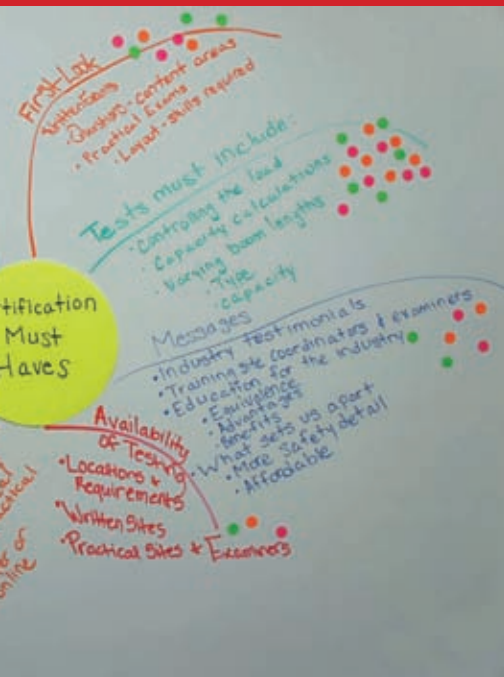 First-Look
Written Exams
• Questions - content areas
• Practical Exams
• Layout - skills required
Tests must include:
• Controlling the load
• Capacity calculations
• Varying boom lengths
• Type
• capacity
tification
Must
Haves
Messages
• Industry testimonials
• Training site coordinators & examiners
• Education for the industry
• Equivalence
• Advantages
• Benefits
• What sets us apart
• More Safety detail
• Affordable
Availability
of Testing
• Locations &
Requirements
• Written Sites
• Practical Sites & Examiners
ctical
er of
online